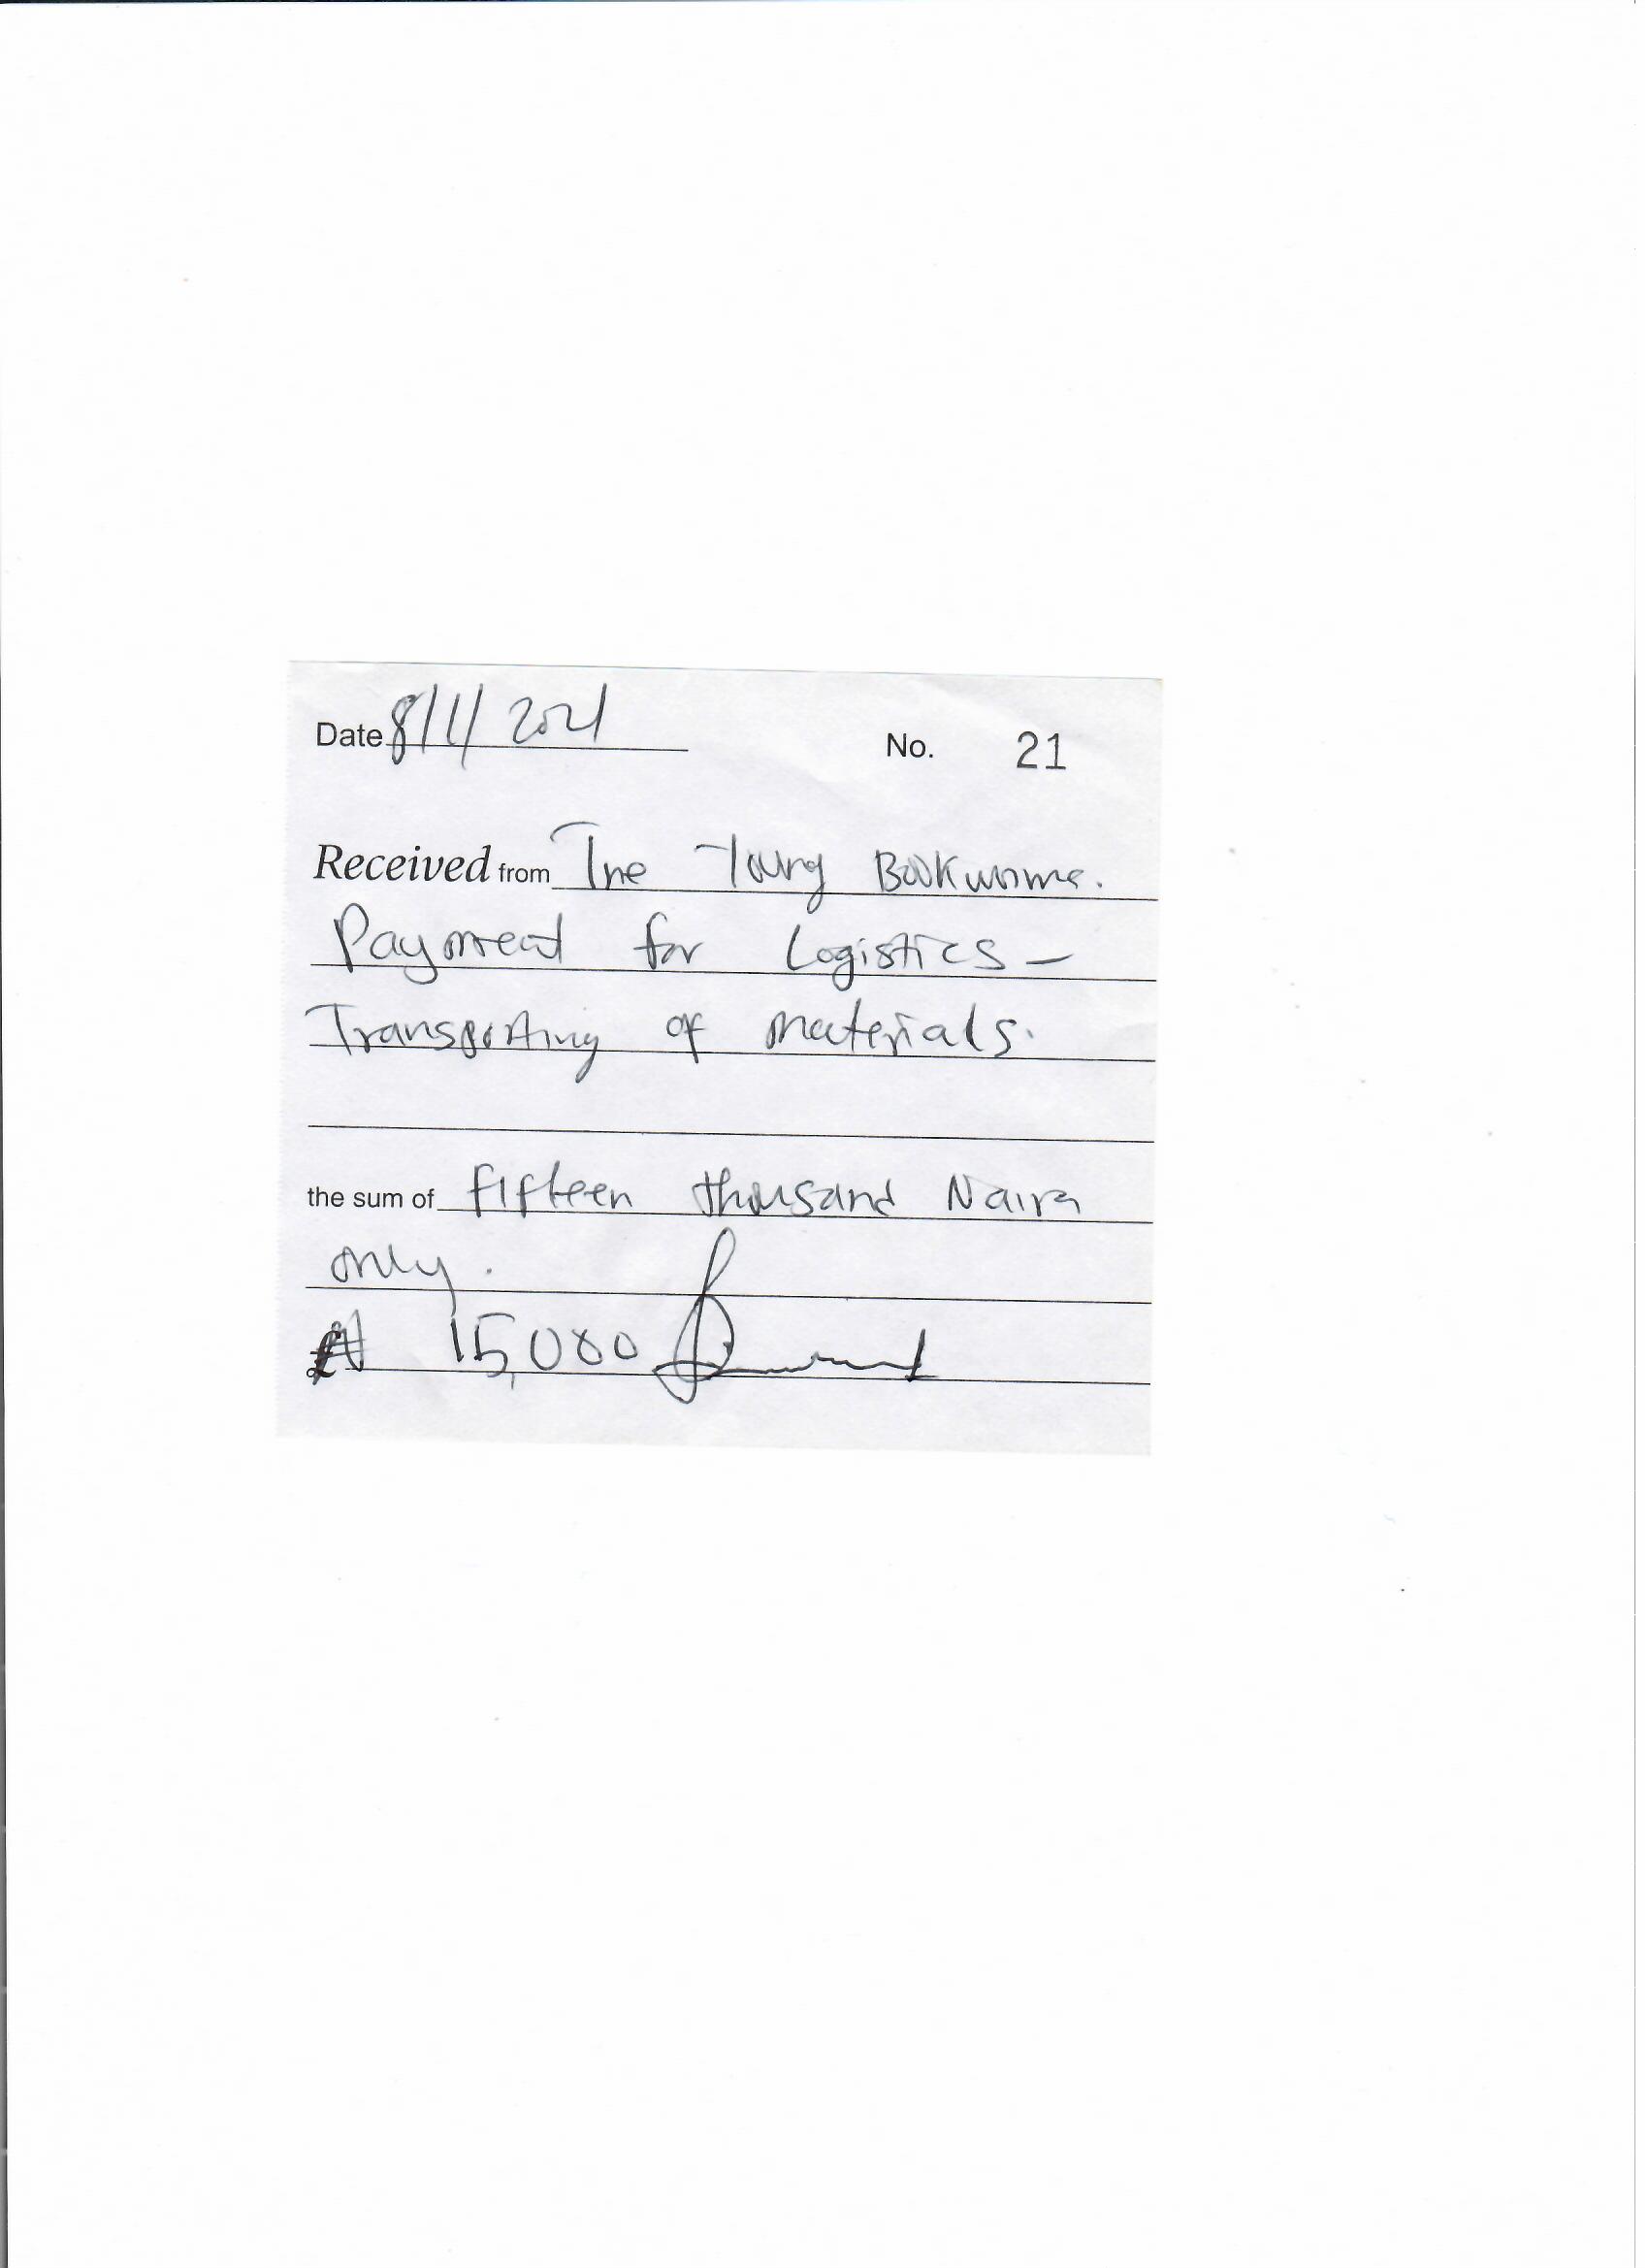 Date 8/1/2021 No. 21
Received from The Young Bookworms.
Payment for Logistics -
Transporting of materials.
the sum of fifteen thousand Naira
only.
₦ 15,000